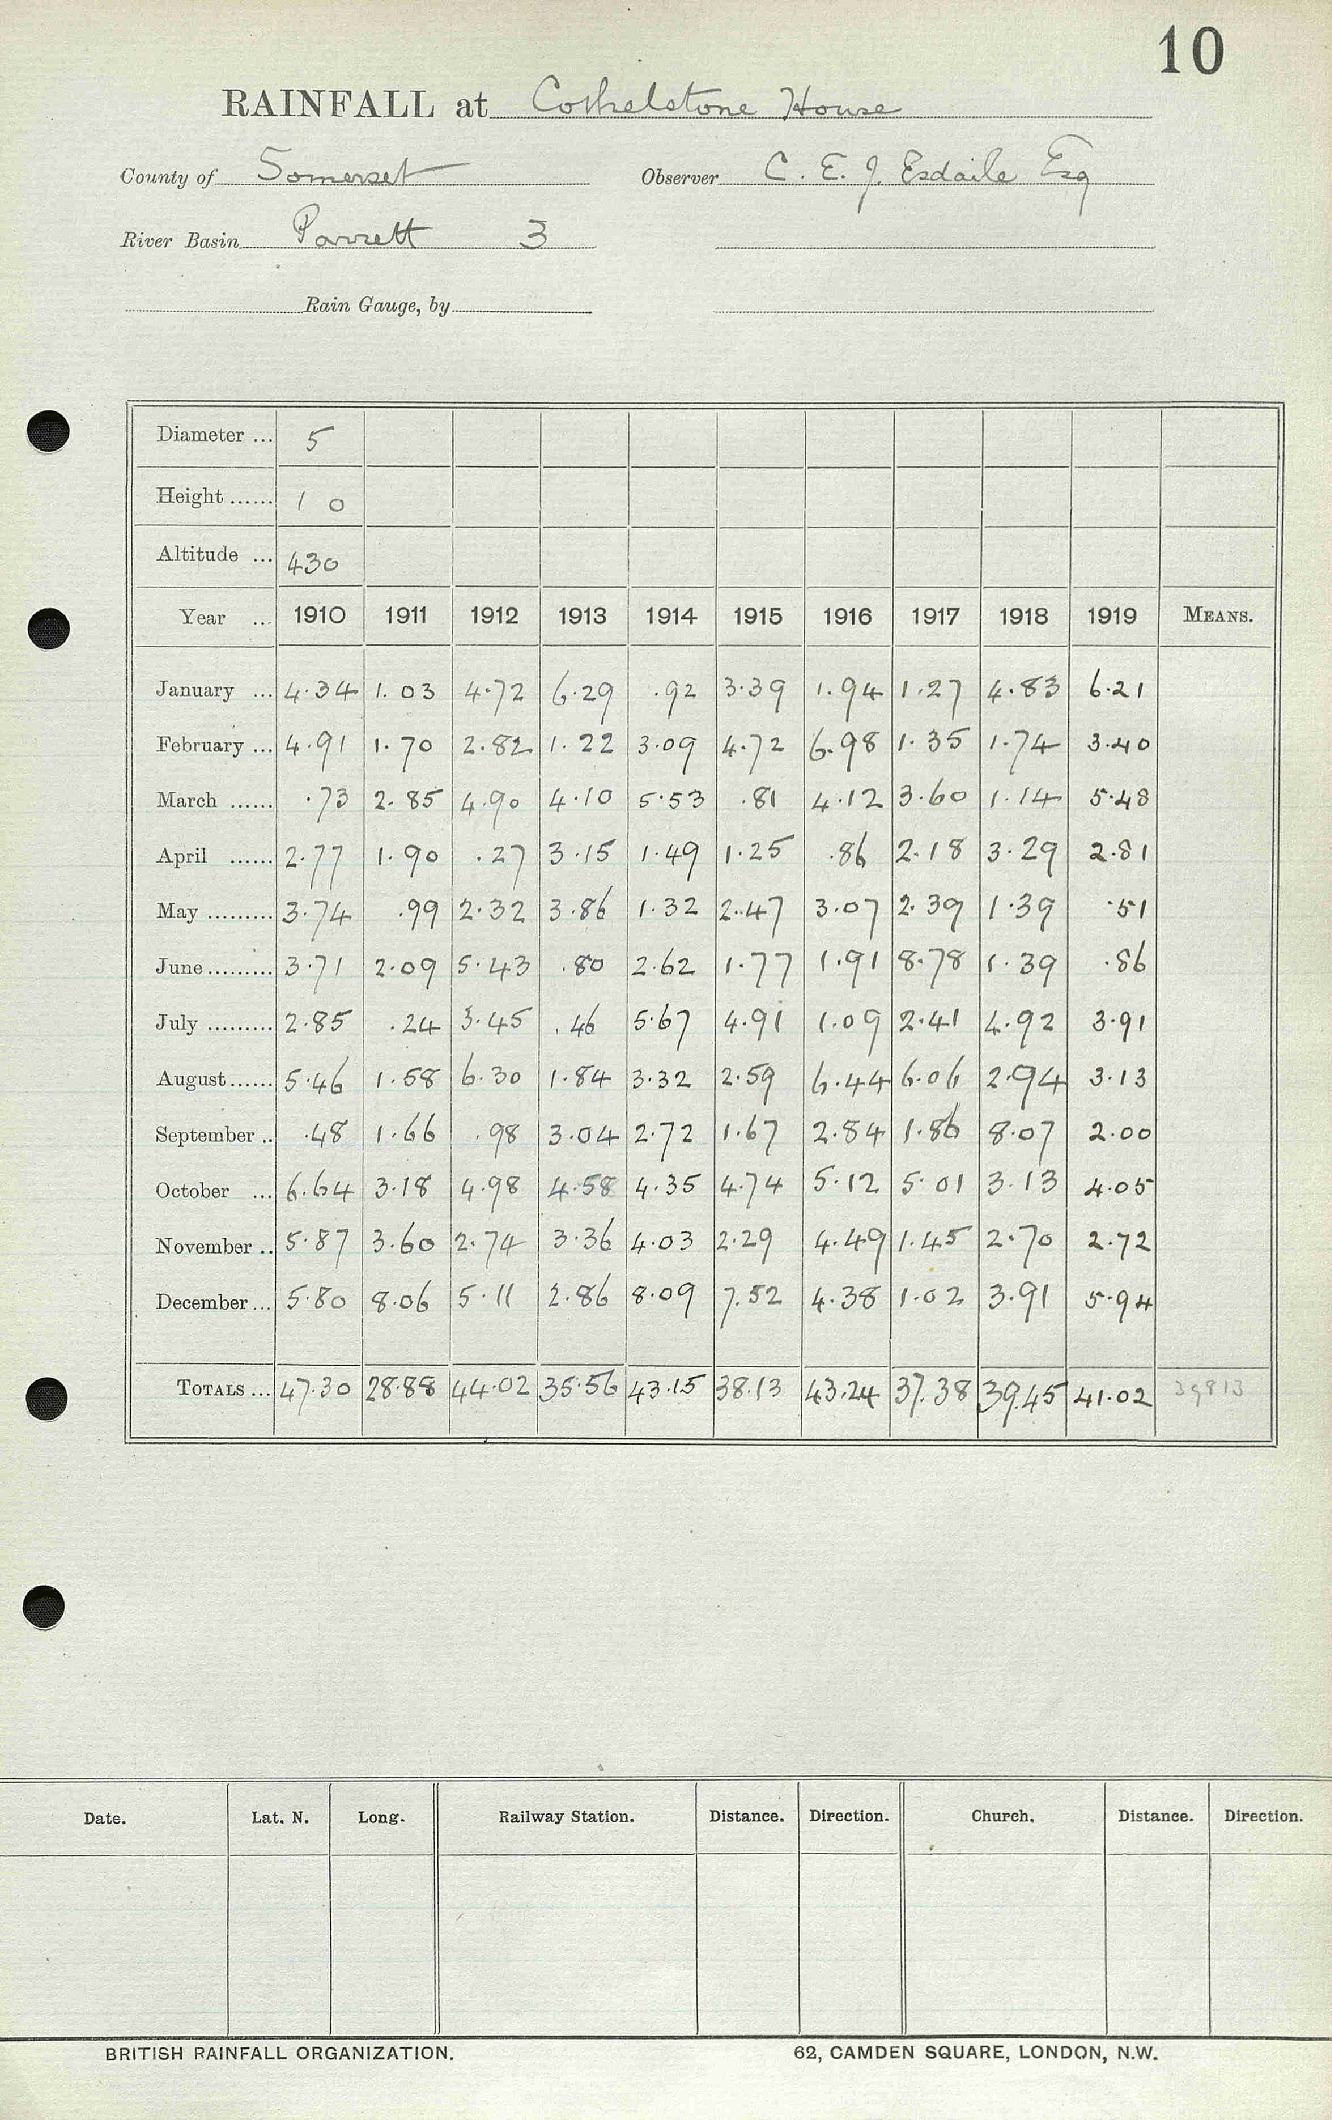 10
RAINFALL at Cothelstone House
County of Somerset Observer C. E. J. Esdaile Esq
River Basin Parrett 3
Rain Gauge, by
Diameter ... 5
Height ...... 1 0
Altitude ... 430
Year ... 1910 1911 1912 1913 1914 1915 1916 1917 1918 1919 MEANS.
January ... 4.34 1.03 4.72 6.29 .92 3.39 1.94 1.27 4.83 6.21
February ... 4.91 1.70 2.82 1.22 3.09 4.72 6.98 1.35 1.74 3.40
March ...... .73 2.85 4.90 4.10 5.53 .81 4.12 3.60 1.14 5.48
April ...... 2.77 1.90 .27 3.15 1.49 1.25 .86 2.18 3.29 2.81
May ......... 3.74 .99 2.32 3.86 1.32 2.47 3.07 2.39 1.39 .51
June ......... 3.71 2.09 5.43 .80 2.62 1.77 1.91 8.78 1.39 .86
July ......... 2.85 .24 3.45 .46 5.67 4.91 1.09 2.41 4.92 3.91
August ...... 5.46 1.58 6.30 1.84 3.32 2.59 6.44 6.06 2.94 3.13
September .. .48 1.66 .98 3.04 2.72 1.67 2.84 1.86 8.07 2.00
October ... 6.64 3.18 4.98 4.58 4.35 4.74 5.12 5.01 3.13 4.05
November .. 5.87 3.60 2.74 3.36 4.03 2.29 4.49 1.45 2.70 2.72
December ... 5.80 8.06 5.11 2.86 8.09 7.52 4.38 1.02 3.91 5.94
TOTALS ... 47.30 28.88 44.02 35.56 43.15 38.13 43.24 37.38 39.45 41.02 39813
Date. Lat. N. Long. Railway Station. Distance. Direction. Church. Distance. Direction.
BRITISH RAINFALL ORGANIZATION. 62, CAMDEN SQUARE, LONDON, N.W.